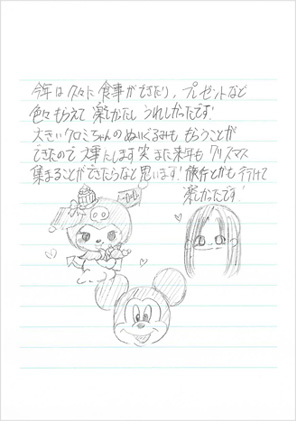 今年は久々に食事ができたり、プレゼントなど
色々もらえて楽しかたしうれしかったです!
大きいクロミちゃんのぬいぐるみももらうことが
できたので大事にします笑 また来年もクリスマス
集まることができたらなと思います!旅行とかも行けて
楽しかったです!